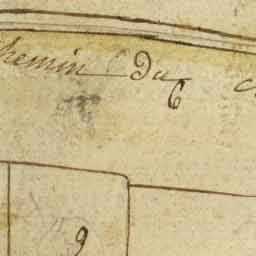 hemin du
6
9